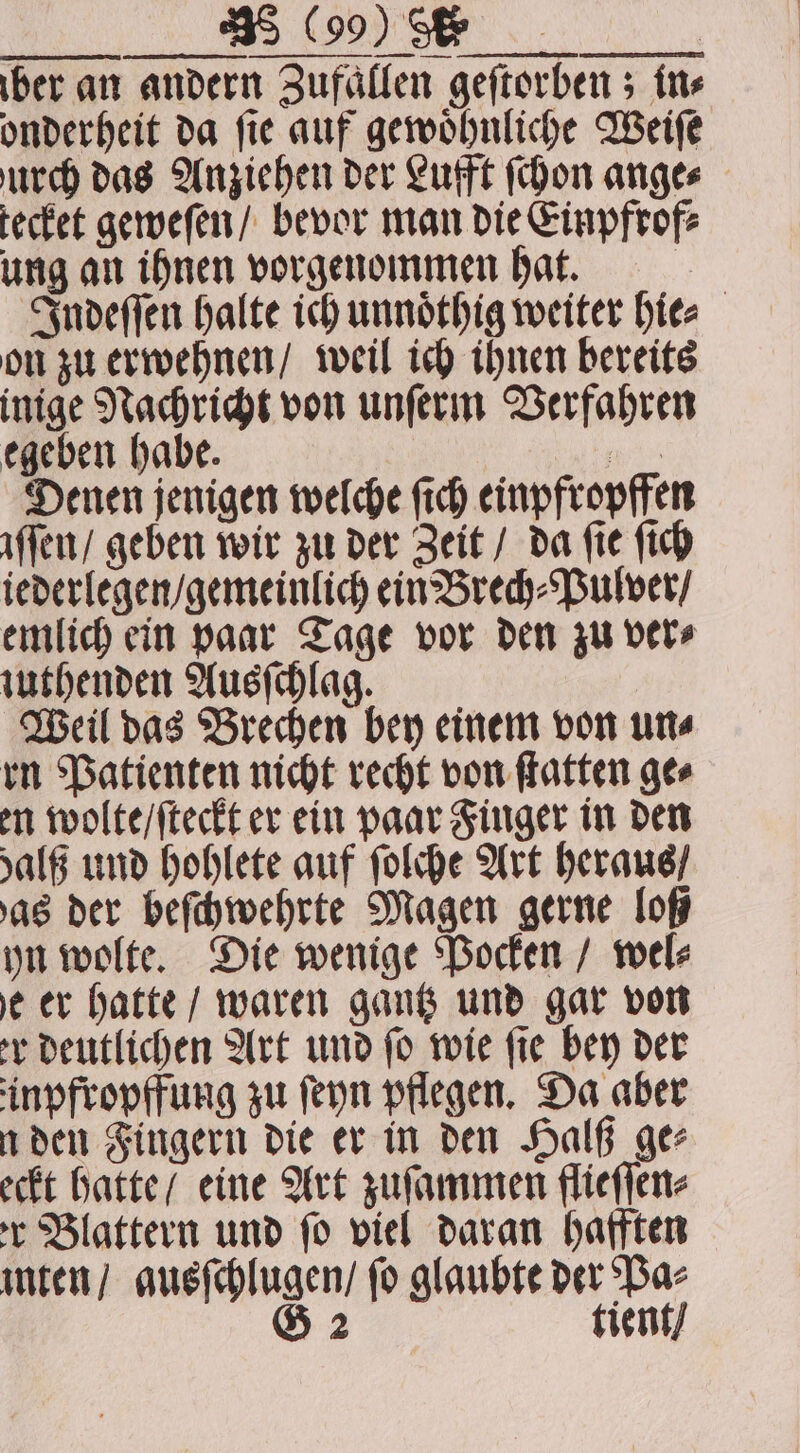 (99)
ber an andern Zufaͤllen geſtorben; in⸗
onderheit da ſie auf gewoͤhnliche Weiſe
urch das Anziehen der Lufft ſchon ange⸗
tecket geweſen/ bevor man die Einpfrof⸗
ung an ihnen vorgenommen hat.
Indeſſen halte ich unnoͤthig weiter hie⸗
on zu erwehnen/ weil ich ihnen bereits
inige Nachricht von unſerm Verfahren
egeben habe.
Denen jenigen welche ſich einpfropffen
aſſen/ geben wir zu der Zeit / da ſie ſich
iederlegen/gemeinlich ein Brech⸗Pulver/
emlich ein paar Tage vor den zu ver⸗
uthenden Ausſchlag.
Weil das Brechen bey einem von un⸗
rn Patienten nicht recht von ſtatten ge⸗
en wolte/ſteckt er ein paar Finger in den
alß und hohlete auf ſolche Art heraus/
as der beſchwehrte Magen gerne loß
yn wolte. Die wenige Pocken / wel⸗
e er hatte / waren gantz und gar von
er deutlichen Art und ſo wie ſie bey der
inpfropffung zu ſeyn pflegen. Da aber
n den Fingern die er in den Halß ge⸗
eckt hatte/ eine Art zuſammen flieſſen⸗
er Blattern und ſo viel daran hafften
nten/ ausſchlugen/ ſo glaubte der Pa⸗
G 2 tient/